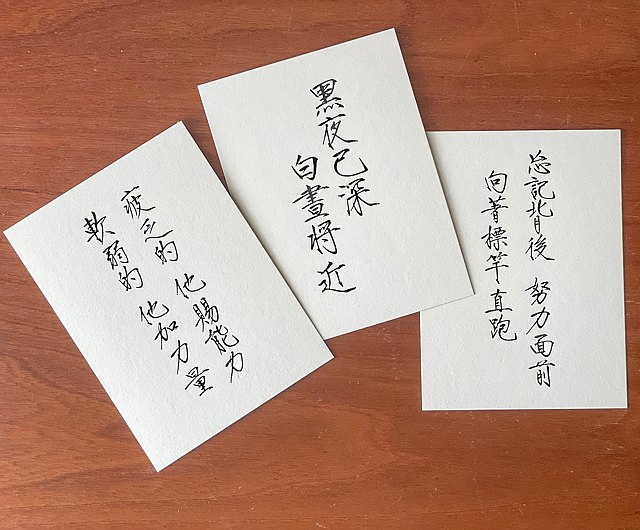 疲乏的 他賜能力
軟弱的 他加力量
黑夜已深
白晝將近
忘記背後 努力面前
向著標竿直跑